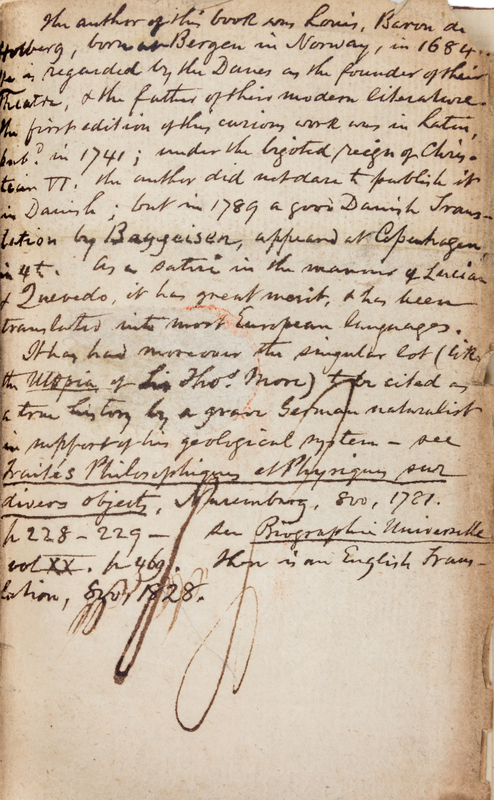 The author of this book was Louis, Baron de
Holberg, born at Bergen in Norway, in 1684.
He is regarded by the Danes as the founder of their
Theatre, & the father of their modern literature.
The first edition of this curious work was in Latin,
pub.d in 1741; under the bigoted reign of Chris-
tian VI. the author did not dare to publish it
in Danish; but in 1789 a good Danish Trans-
lation by Baggeisen, appeared at Copenhagen,
in 4to. As a satire in the manner of Lucian
& Quevedo, it has great merit, & has been
translated into most European languages.
It has had moreover the singular lot (like
the Utopia of Sir Thos. More) to be cited as
a true history by a grave German naturalist
in support of his geological system — see
Traités Philosophiques et Physiques sur
divers objects, Nuremburg, 8vo, 1781.
p 228 - 229 — see Biographie Universelle
vol XX. p 469. There is an English Trans-
lation, 8vo, 1828.